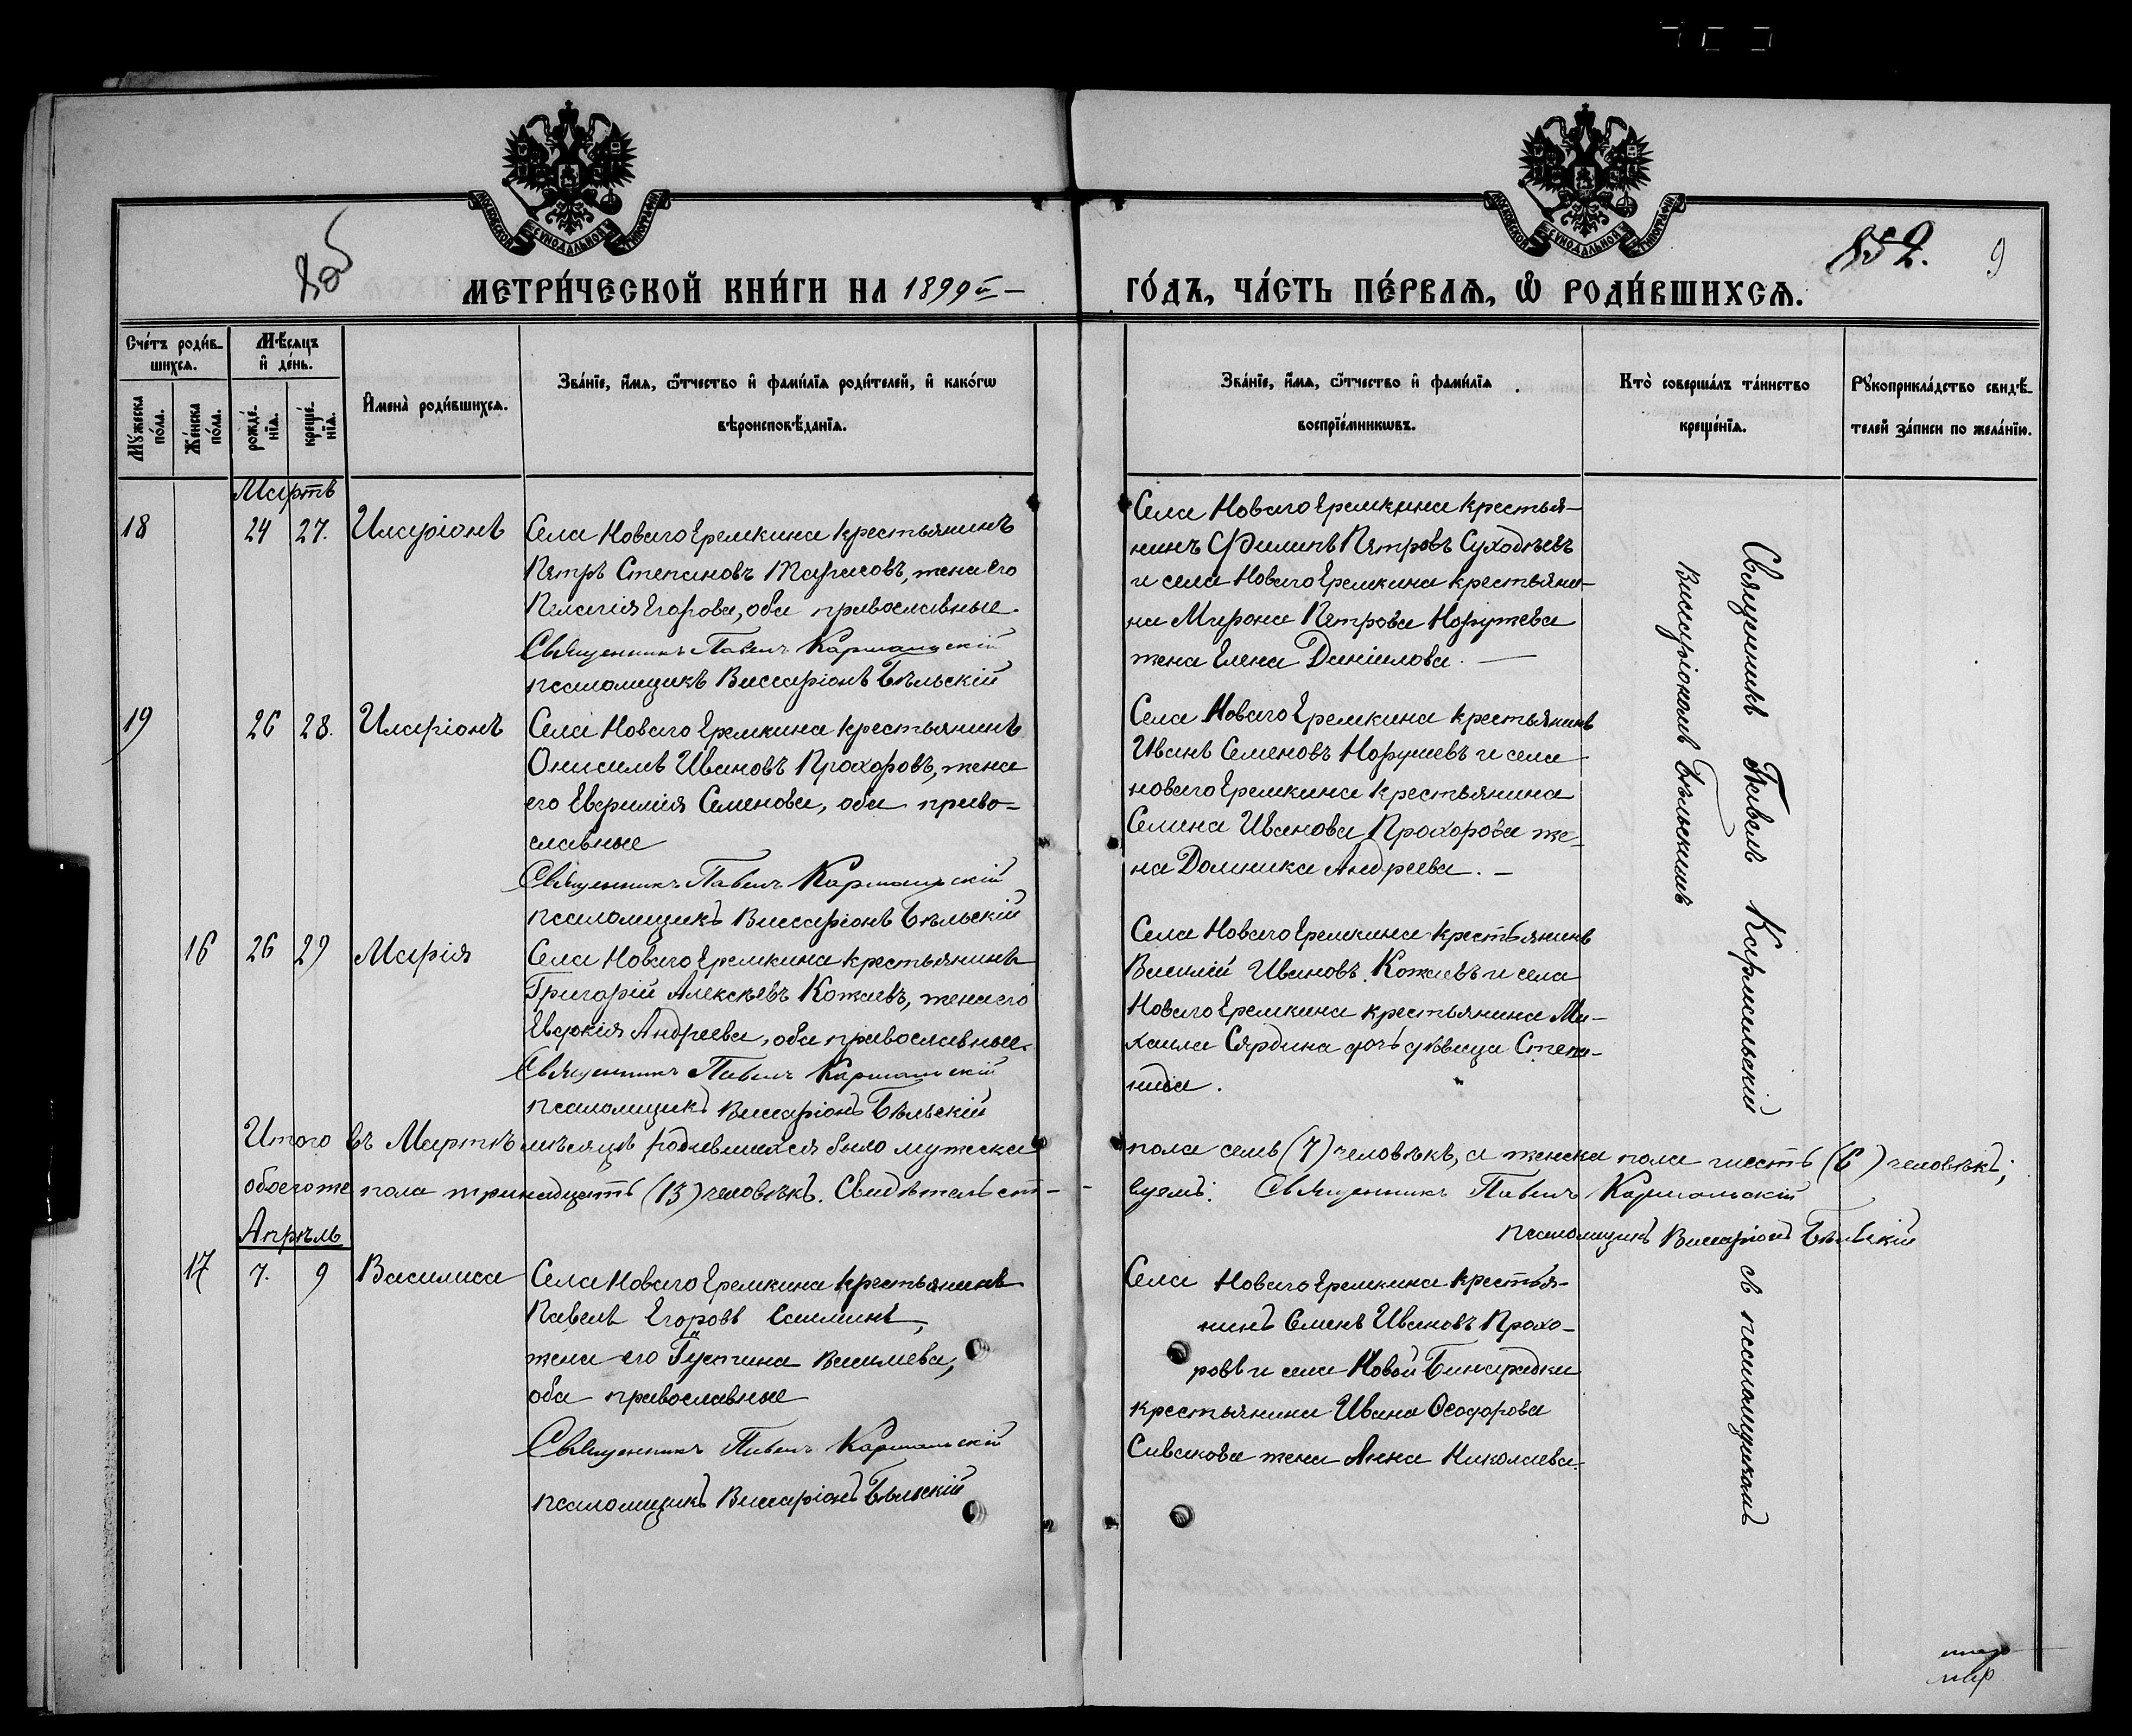 МЕТРИ́ЧЕСКОЙ КНИ́ГИ НА 1899й
ГО́ДЪ, ЧА́СТЬ ПЕ́РВАѦ, Ѡ҆ РОДИ́ВШИХСѦ.
852. 9
МОСКОВСКОЙ СѴНОДАЛЬНОЙ ТИПОГРАФІИ
МОСКОВСКОЙ СѴНОДАЛЬНОЙ ТИПОГРАФІИ
Сче́тъ роди́в-
шихсѧ.
Мѣ́сѧцъ
и҆ де́нь.
Мꙋ́жеска
по́ла.
Же́нска
по́ла.
рожде́-
нїѧ.
креще́-
нїѧ.
И҆мена̀ роди́вшихсѧ.
Зва́нїе, и҆́мѧ, ѻ҆́тчество и҆ фами́лїѧ роди́телей, и҆ како́гѡ
вѣроисповѣ́данїѧ.
Зва́нїе, и҆́мѧ, ѻ҆́тчество и҆ фами́лїѧ
воспрїе́мникѡвъ.
Кто̀ соверша́лъ та́инство
креще́нїѧ.
Рꙋкоприкла́дство свидѣ́-
телей за́писи по жела́нїю.
Мартъ
18 24 27. Иларіонъ
Села Новаго Еремкина крестьянинъ
Петръ Степановъ Тарасовъ, жена его
Пелагія Егорова, оба православные.
Священникъ Павелъ Кармальскій
псаломщикъ Виссаріонъ Бѣльскій
Села Новаго Еремкина крестья-
нинъ Филипъ Петровъ Суходѣевъ
и села Новаго Еремкина крестьяни-
на Мирона Петрова Норушева
жена Елена Даніилова.
19 26 28. Иларіонъ
Села Новаго Еремкина крестьянинъ
Онисимъ Ивановъ Прохоровъ, жена
его Евфимія Семенова, оба право-
славные
Священникъ Павелъ Кармальскій
псаломщикъ Виссаріонъ Бѣльскій
Села Новаго Еремкина крестьянинъ
Иванъ Семеновъ Норушевъ и села
Новаго Еремкина крестьянина
Семена Иванова Прохорова же-
на Домника Андреева.
16 26 29 Марія
Села Новаго Еремкина крестьянинъ
Григорій Алексѣевъ Кожаевъ, жена его
Евдокія Андреева, оба православные.
Священникъ Павелъ Кармальскій
псаломщикъ Виссаріонъ Бѣльскій
Села Новаго Еремкина крестьянинъ
Василій Ивановъ Кожаевъ и села
Новаго Еремкина крестьянина Ми-
хаила Сярдина дочь дѣвица Степа-
нида.
Итого въ Мартѣ мѣсяцѣ родившихся было мужеска
пола семь (7) человѣкъ, а женска пола шесть (6) человѣкъ;
обоего же пола тринадцать (13) человѣкъ. Свидѣтельст-
вуемъ: Священникъ Павелъ Кармальскій
псаломщикъ Виссаріонъ Бѣльскій
Апрѣль
17 7. 9 Василиса
Села Новаго Еремкина крестьянинъ
Павелъ Егоровъ
жена его Густина Василиева,
оба православные
Священникъ Павелъ Кармальскій
псаломщикъ Виссаріонъ Бѣльскій
Села Новаго Еремкина крестья-
нинъ Семенъ Ивановъ Прохо-
ровъ и села Новой Бинарадки
крестьянина Ивана Ѳеодорова
Сивакова жена Анна Николаева.
Священникъ Павелъ Кармальскій съ псаломщикомъ
Виссаріономъ Бѣльскимъ